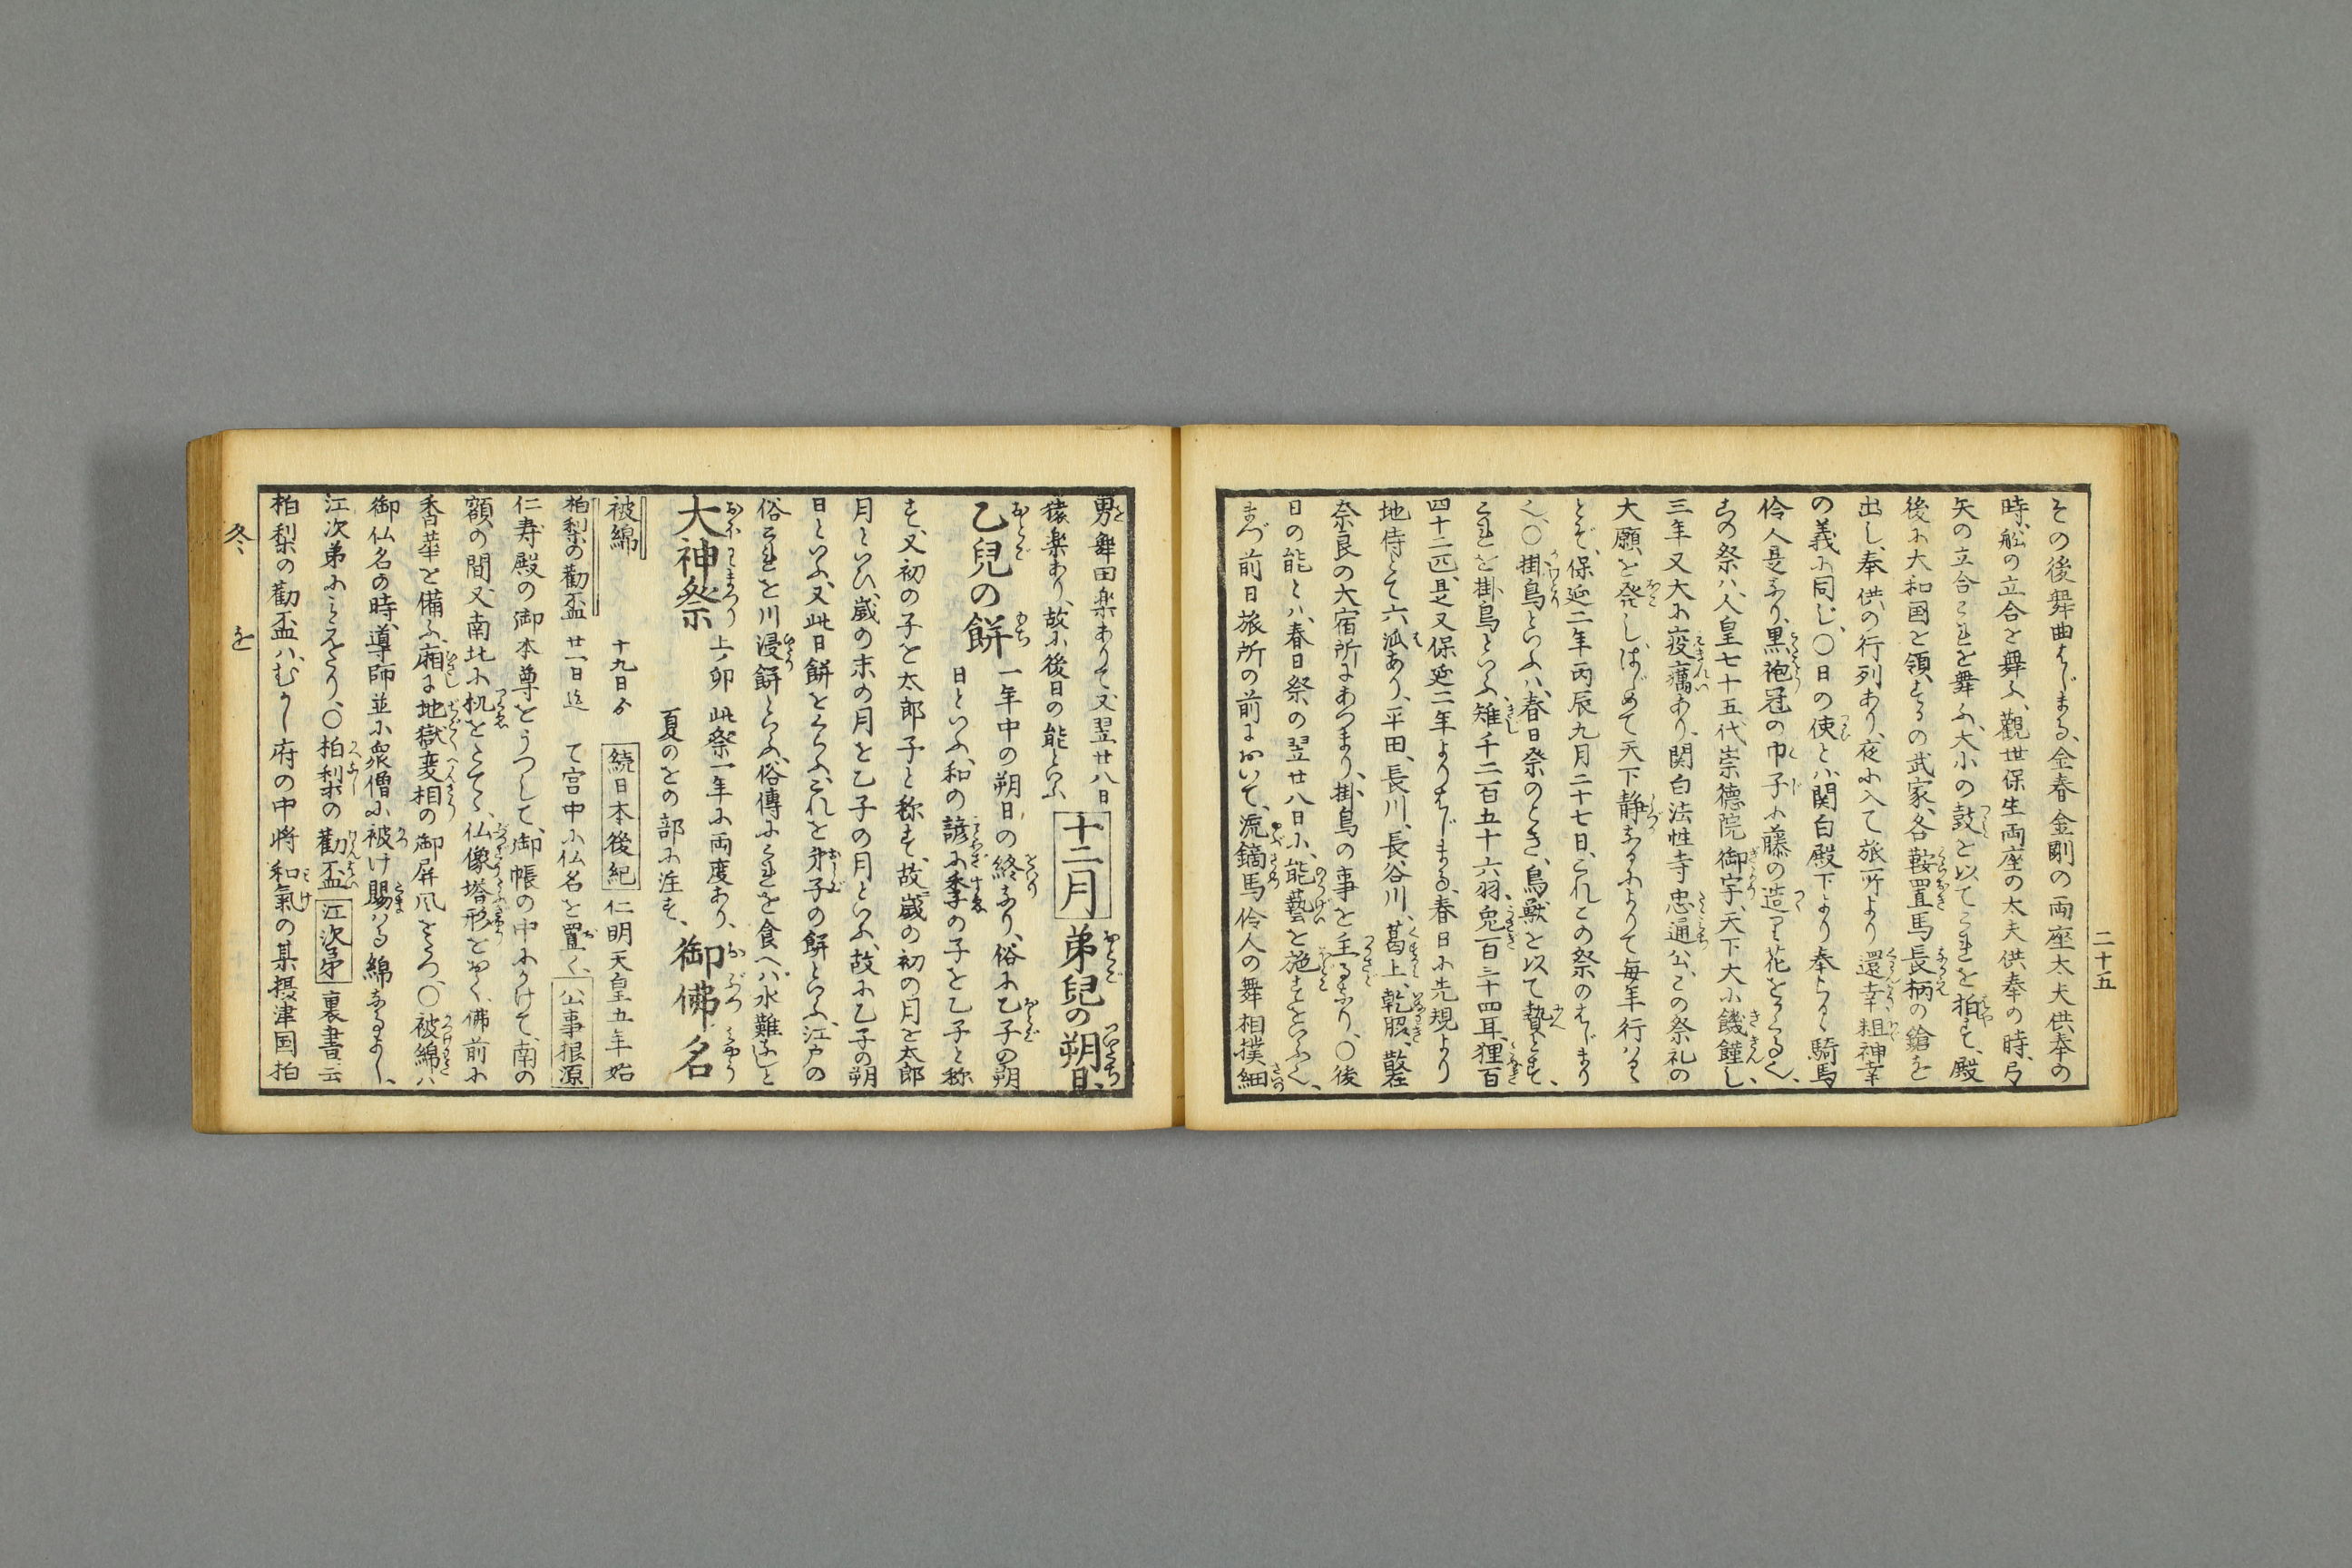 その後舞曲はじまる、金春金剛の両座太夫供奉の
時、舩の立合を舞ふ、觀世保生両座の太夫供奉の時、弓
矢の立合これを舞ふ、大小の鼓を以てこれを拍す、殿
後に大和国を領するの武家、各鞍置馬長柄の鎗を
出し、奉供の行列あり、夜に入て旅所より還幸粗神幸
の義に同じ、〇日の使とハ関白殿下より奉らるゝ騎馬
伶人是なり、黒袍冠の巾子に藤の造り花をかくる也、
この祭ハ、人皇七十五代崇徳院御宇、天下大に饑饉し、
三年又大に疫癘あり、関白法性寺忠通公、この祭礼の
大願を発しはじめて天下静なるによりて毎年行はる
とぞ、保延二年丙辰九月二十七日、これこの祭のはじまり
也、〇掛鳥といふハ、春日祭のとき、鳥獣を以て贄とす、
これを掛鳥といふ、雉千二百五十六羽、兎百三十四耳、狸百
四十二匹、是又保延二年よりはじまる、春日に先規より
地侍とて六派あり、平田、長川、長谷川、葛上、乾脇、散在
奈良の大宿所にあつまり、掛鳥の事を主るなり、〇後
日の能とハ、春日祭の翌廿八日に、能藝を施すをいふ也、
まづ前日旅所の前において、流鏑馬伶人の舞相撲、細
二十五
男舞田楽ありて、又翌廿八日
猿楽あり、故に後日の能といふ
十二月
弟兒の朔日、
乙兒の餅
一年中の朔日の終なり、俗に乙子の朔
日といふ、和の諺に季の子を乙子と称
す、又初の子を太郎子と称す、故歳の初の月を太郎
月といひ、歳の末の月を乙子の月といふ、故に乙子の朔
日といふ、又此日餅をくらふ、これを弟子の餅といふ、江戸の
俗これを川浸餅といふ、俗傳にこれを食へバ水難なしと
大神祭
上ノ卯
此祭一年に両度あり、
夏のをの部に注す、
御佛名
被綿
柏梨の勸盃
十九日ゟ
廿一日迄
続日本後紀
仁明天皇五年始
て宮中に仏名を置く、
公事根源
仁寿殿の御本尊をうつして、御帳の中にかけて、南の
額の間又南北に机をたてゝ、仏像塔形をおく、佛前に
香華を備ふ、廂に地獄変相の御屏風をたつ、〇被綿ハ
御仏名の時、導師並に衆僧に被け賜はる綿なるよし、
江次第にみえたり、〇柏梨の勸盃
江次第
裏書云
柏梨の勸盃ハ、むかし府の中将和氣の某摂津国柏
冬
を